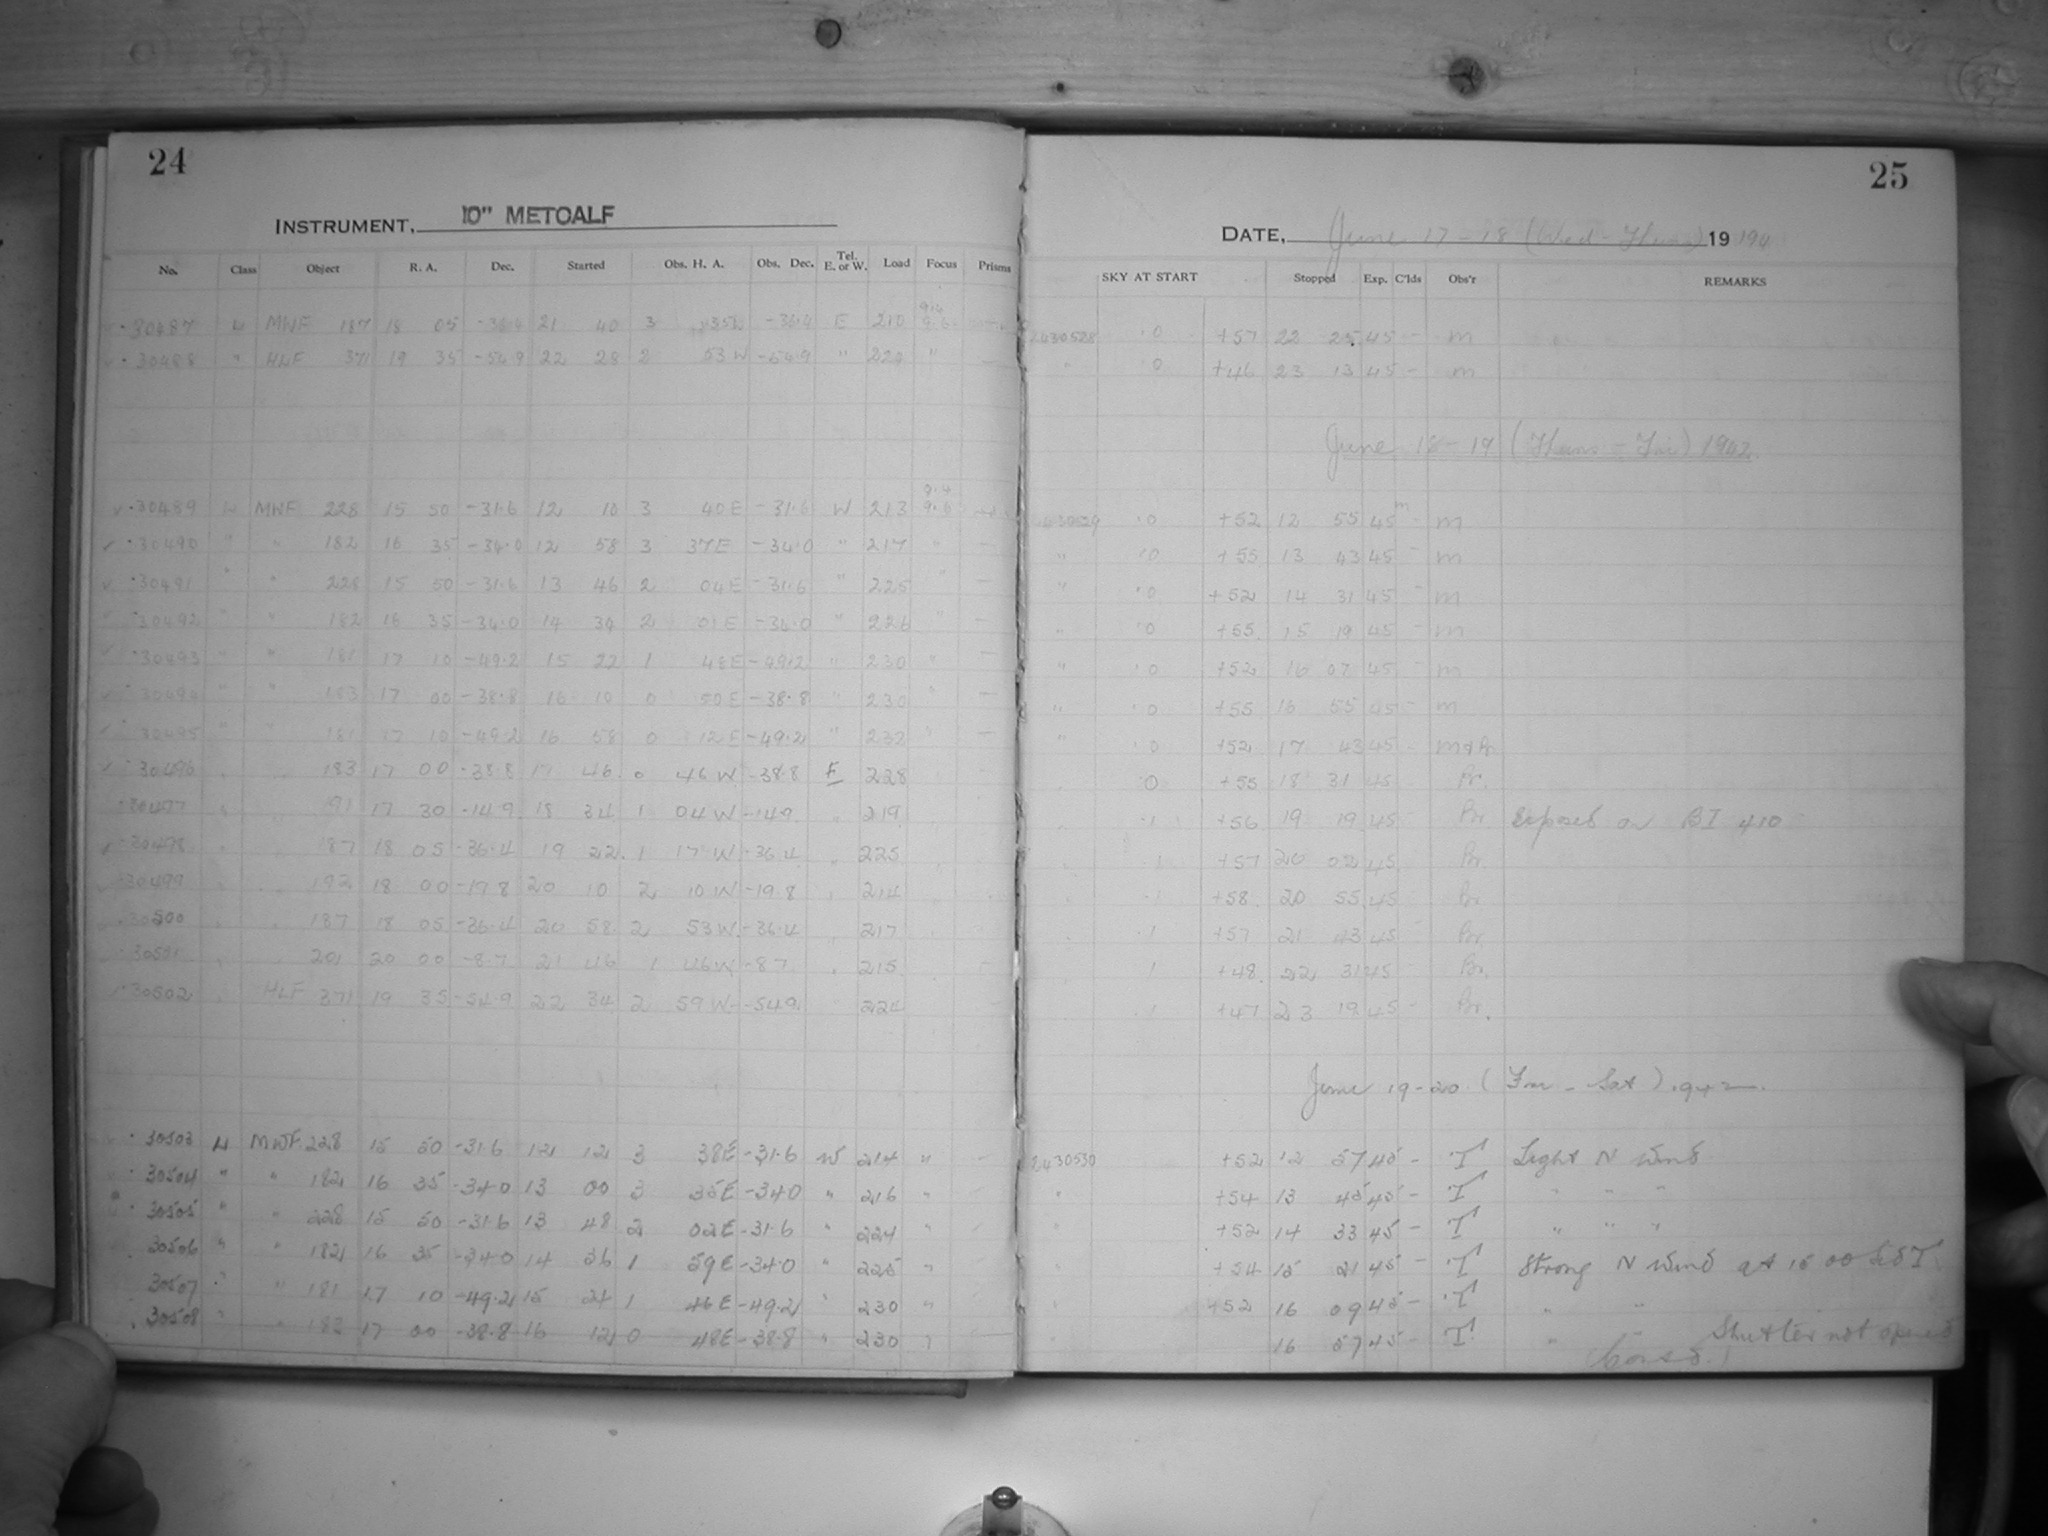 24
INSTRUMENT, 10" METCALF
No. Class Object R. A. Dec. Started Obs. H. A. Obs. Dec. Tel. E. or W. Load Focus Prisms
30487 MWF 187 18 05 -36.4 21 40 3 35W -36.4 E 210 9.4 9.6
30488 " HLF 371 19 35 -54.9 22 28 2 53 W -54.9 " 220 " —
30489 MWF 228 15 50 -31.6 12 10 3 40 E -31.6 W 213 9.4 9.6
30490 " " 182 16 35 -34.0 12 58 3 37 E -34.0 " 217 " —
30491 " " 228 15 50 -31.6 13 46 2 04 E -31.6 " 225 " —
30492 " " 182 16 35 -34.0 14 34 2 01 E -34.0 " 226 " —
30493 " " 181 17 10 -49.2 15 22 1 48 E -49.2 " 230 " —
30494 " " 183 17 00 -38.8 16 10 0 50 E -38.8 " 230 " —
30495 " " 181 17 10 -49.2 16 58 0 12 E -49.2 " 232 " —
30496 183 17 00 -38.8 17 46 0 46 W -38.8 E 228
30497 191 17 30 -14.9 18 34 1 04 W -14.9 219
30498 187 18 05 -36.4 19 22 1 17 W -36.4 225
30499 192 18 00 -19.8 20 10 2 10 W -19.8 214
30500 187 18 05 -36.4 20 58 2 53 W -36.4 217
30501 201 20 00 -8.7 21 46 1 46 W -8.7 215
30502 HLF 371 19 35 -54.9 22 34 2 59 W -54.9 224
30503 MWF 228 15 50 -31.6 12 12 3 38 E -31.6 W 214 "
30504 " " 182 16 35 -34.0 13 00 3 35 E -34.0 " 216 "
30505 " " 228 15 50 -31.6 13 48 2 02 E -31.6 " 224 "
30506 " " 182 16 35 -34.0 14 36 1 59 E -34.0 " 225 "
30507 " " 181 17 10 -49.2 15 24 1 46 E -49.2 " 230 "
30508 " " 183 17 00 -38.8 16 12 0 48 E -38.8 " 230 "
25
DATE, June 17-18 (Wed-Thurs) 19
SKY AT START Stopped Exp. C'lds Obs'r REMARKS
2430528 .0 +57 22 25 45 - m
" .0 +46 23 13 45 - m
June 18-19 (Thurs-Fri) 1942
2430529 .0 +52 12 55 45m - m
" .0 +55 13 43 45 - m
" .0 +52 14 31 45 - m
" .0 +55 15 19 45 - m
" .0 +52 16 07 45 - m
" .0 +55 16 55 45 - m
" .0 +52 17 43 45 - m & Br
.0 +55 18 31 45 Br.
.1 +56 19 19 45 Br. Exposed on BI 410
.1 +57 20 45 Br.
.1 +58 20 55 45 Br.
.1 +57 21 43 45 Br.
.1 +48 22 31 45 Br.
.1 +47 23 19 45 Br.
June 19-20 (Fri-Sat) 1942
2430530 +52 12 57 45 - T Light N wind
" +54 13 45 45 - T " " "
+52 14 33 45 - T " " "
+54 15 21 45 - T Strong N wind at 15 00
+52 16 09 45 - T " "
16 57 45 - T " " Shutter not opened